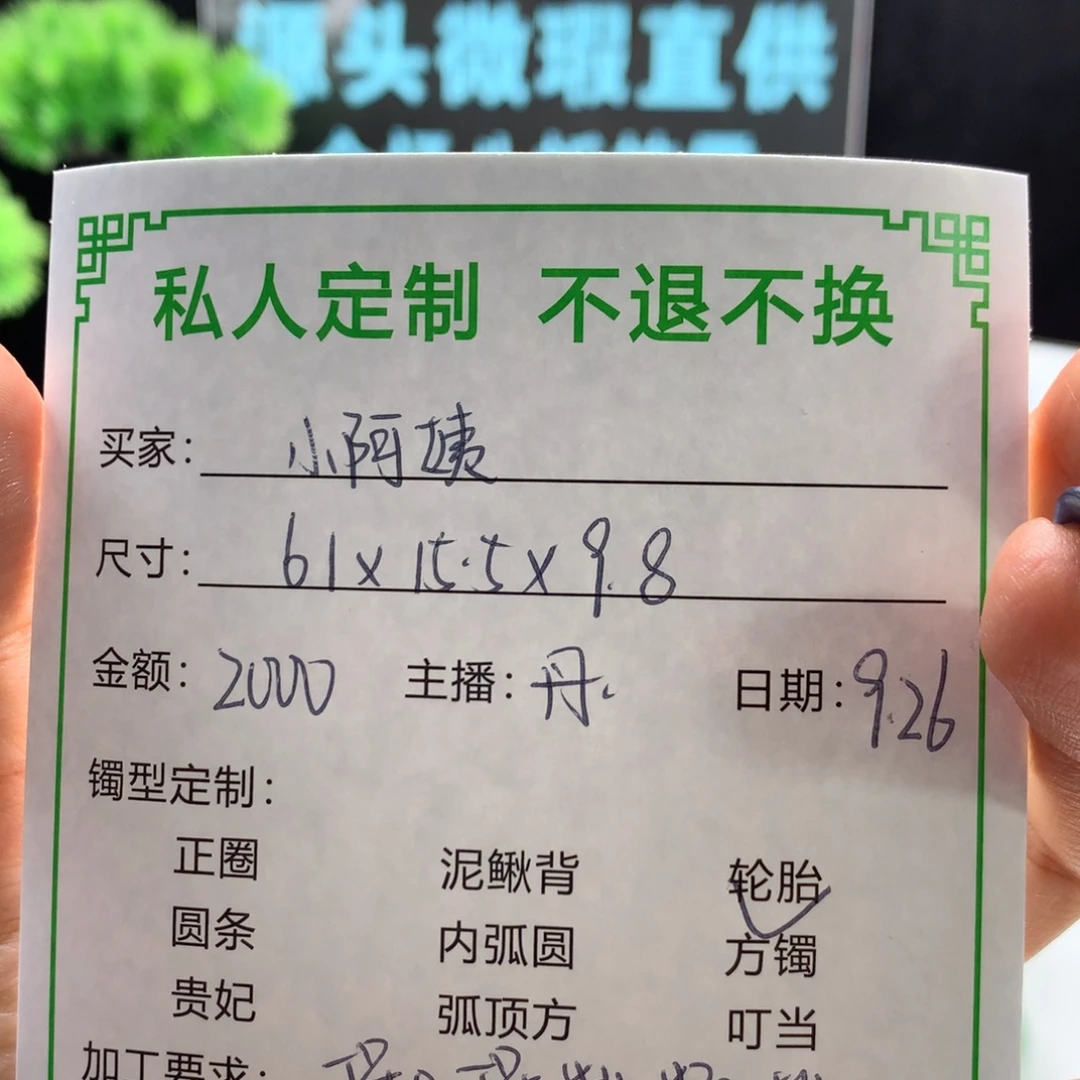 源头微瑕直供
私人定制 不退不换
买家： 小阿姨
尺寸： 61x15.5x9.8
金额： 2000 主播： 丹. 日期： 9.26
镯型定制：
正圈 泥鳅背 轮胎
圆条 内弧圆 方镯
贵妃 弧顶方 叮当
加工要求：